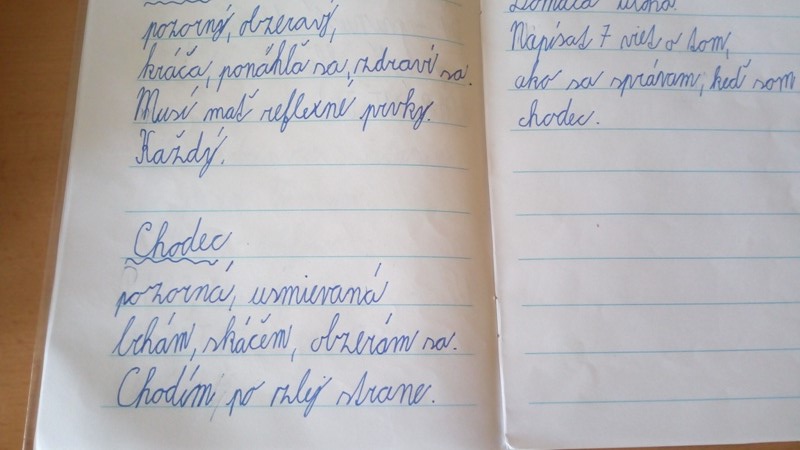 pozorný, obzeravý,
kráča, ponáhľa sa, zdraví sa.
Musí mať reflexné prvky.
Každý.
Chodec
pozorná, usmievaná
behám, skáčem, obzerám sa.
Chodím po zlej strane.
Domáca úloha.
Napísať 7 viet o tom,
ako sa správam, keď som
chodec.